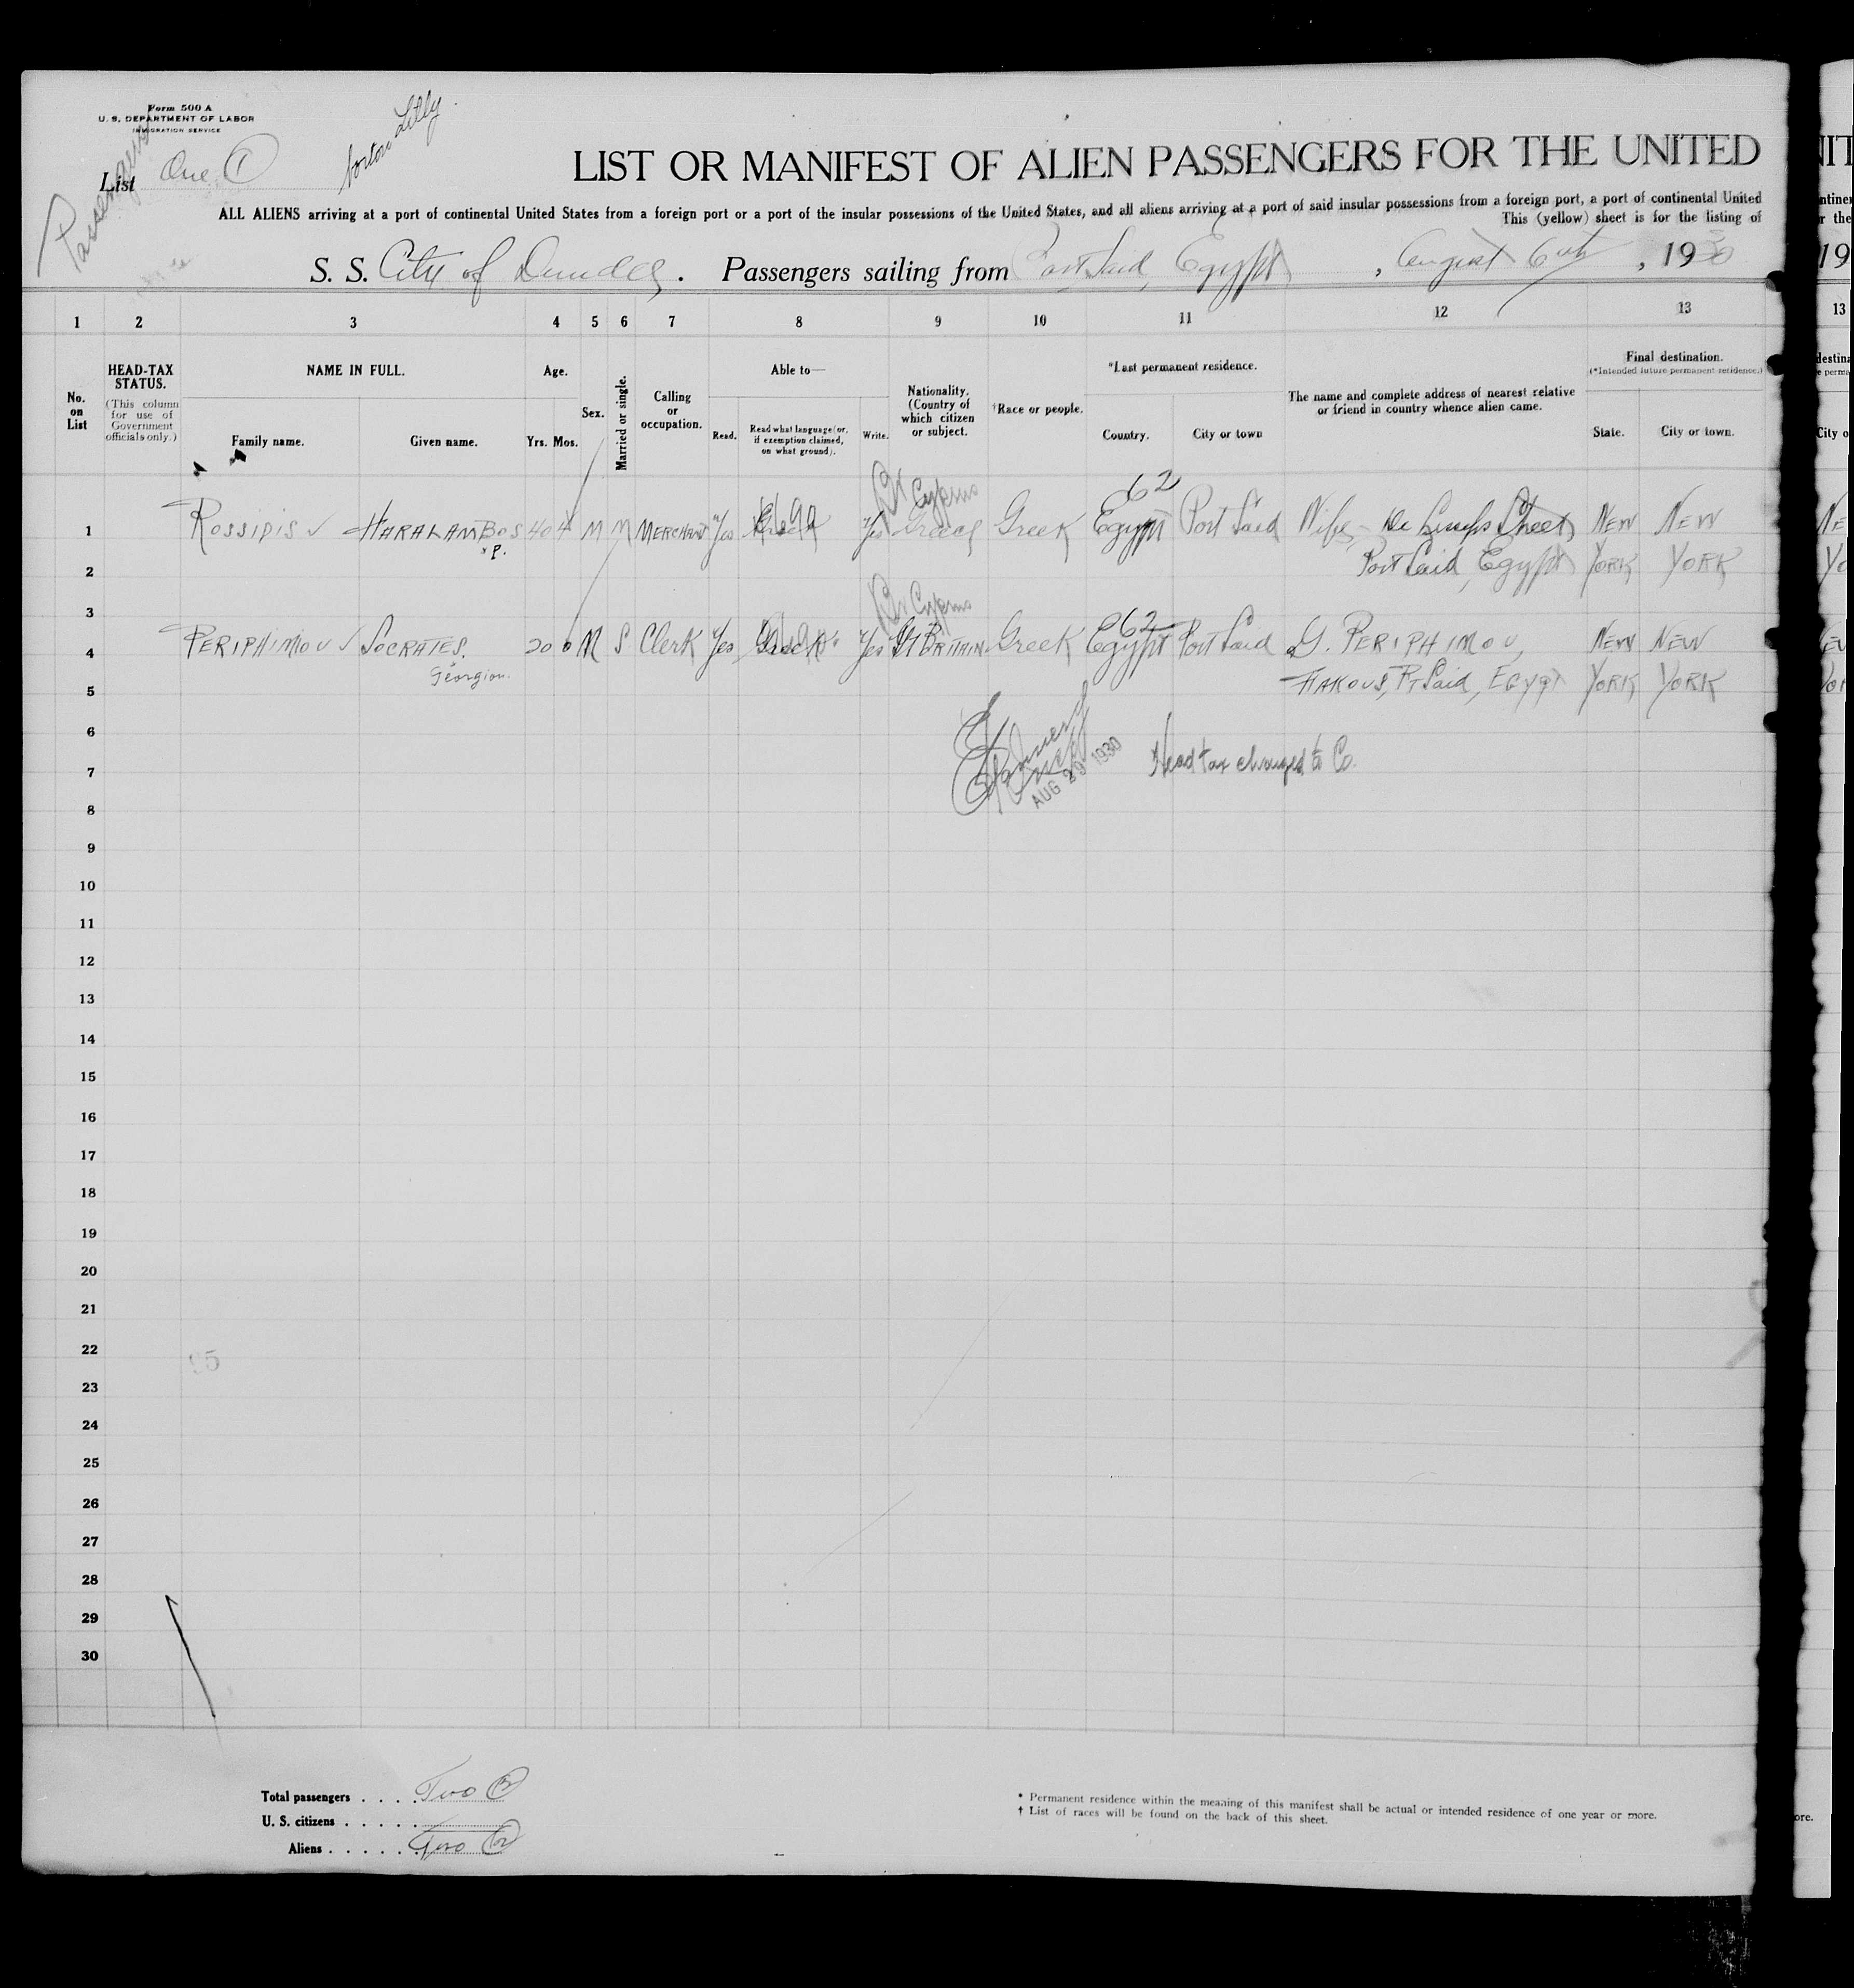 Form 500 A
U. S. DEPARTMENT OF LABOR
IMMIGRATION SERVICE
Passengers
List One (1)
Norton Lilly
LIST OR MANIFEST OF ALIEN PASSENGERS FOR THE UNITED
ALL ALIENS arriving at a port of continental United States from a foreign port or a port of the insular possessions of the United States, and all aliens arriving at a port of said insular possessions from a foreign port, a port of continental United
This (yellow) sheet is for the listing of
S. S. City of Dundee. Passengers sailing from Port Said, Egypt, August 6th, 1930
1 2 3 4 5 6 7 8 9 10 11 12 13
No. on List
HEAD-TAX STATUS.
(This column for use of Government officials only.)
NAME IN FULL.
Family name. Given name.
Age.
Yrs. Mos.
Sex.
Married or single.
Calling or occupation.
Able to—
Read. Read what language (or, if exemption claimed, on what ground). Write.
Nationality. (Country of which citizen or subject.
†Race or people.
*Last permanent residence.
Country. City or town
The name and complete address of nearest relative or friend in country whence alien came.
Final destination.
(*Intended future permanent residence.)
State. City or town.
Br Cyprus 62
1 ROSSIDIS HARALAMBOS 40 4 M M MERCHANT Yes Greek Yes Greece Greek Egypt Port Said Wife - Street NEW NEW
P.
2 Port Said, Egypt YORK YORK
3 Br Cyprus 62
4 PERIPHIMOU SOCRATES. 20 0 M S Clerk Yes Greek Yes Gt BRITAIN Greek Egypt Port Said G. PERIPHIMOU, NEW NEW
Georgiou.
5 HAKOUS, Pt Said, EGYPT YORK YORK
6
7 AUG 29 1930 Head tax charged to Co.
8
9
10
11
12
13
14
15
16
17
18
19
20
21
22
23
24
25
26
27
28
29
30
Total passengers . . . . Two (2)
U. S. citizens . . . . . .
Aliens . . . . . . Two (2)
* Permanent residence within the meaning of this manifest shall be actual or intended residence of one year or more.
† List of races will be found on the back of this sheet.